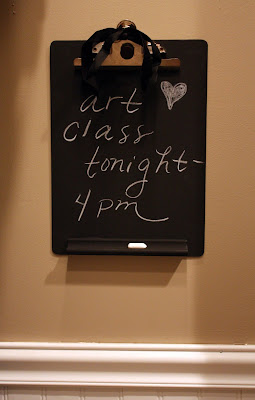 art
class
tonight-
4pm